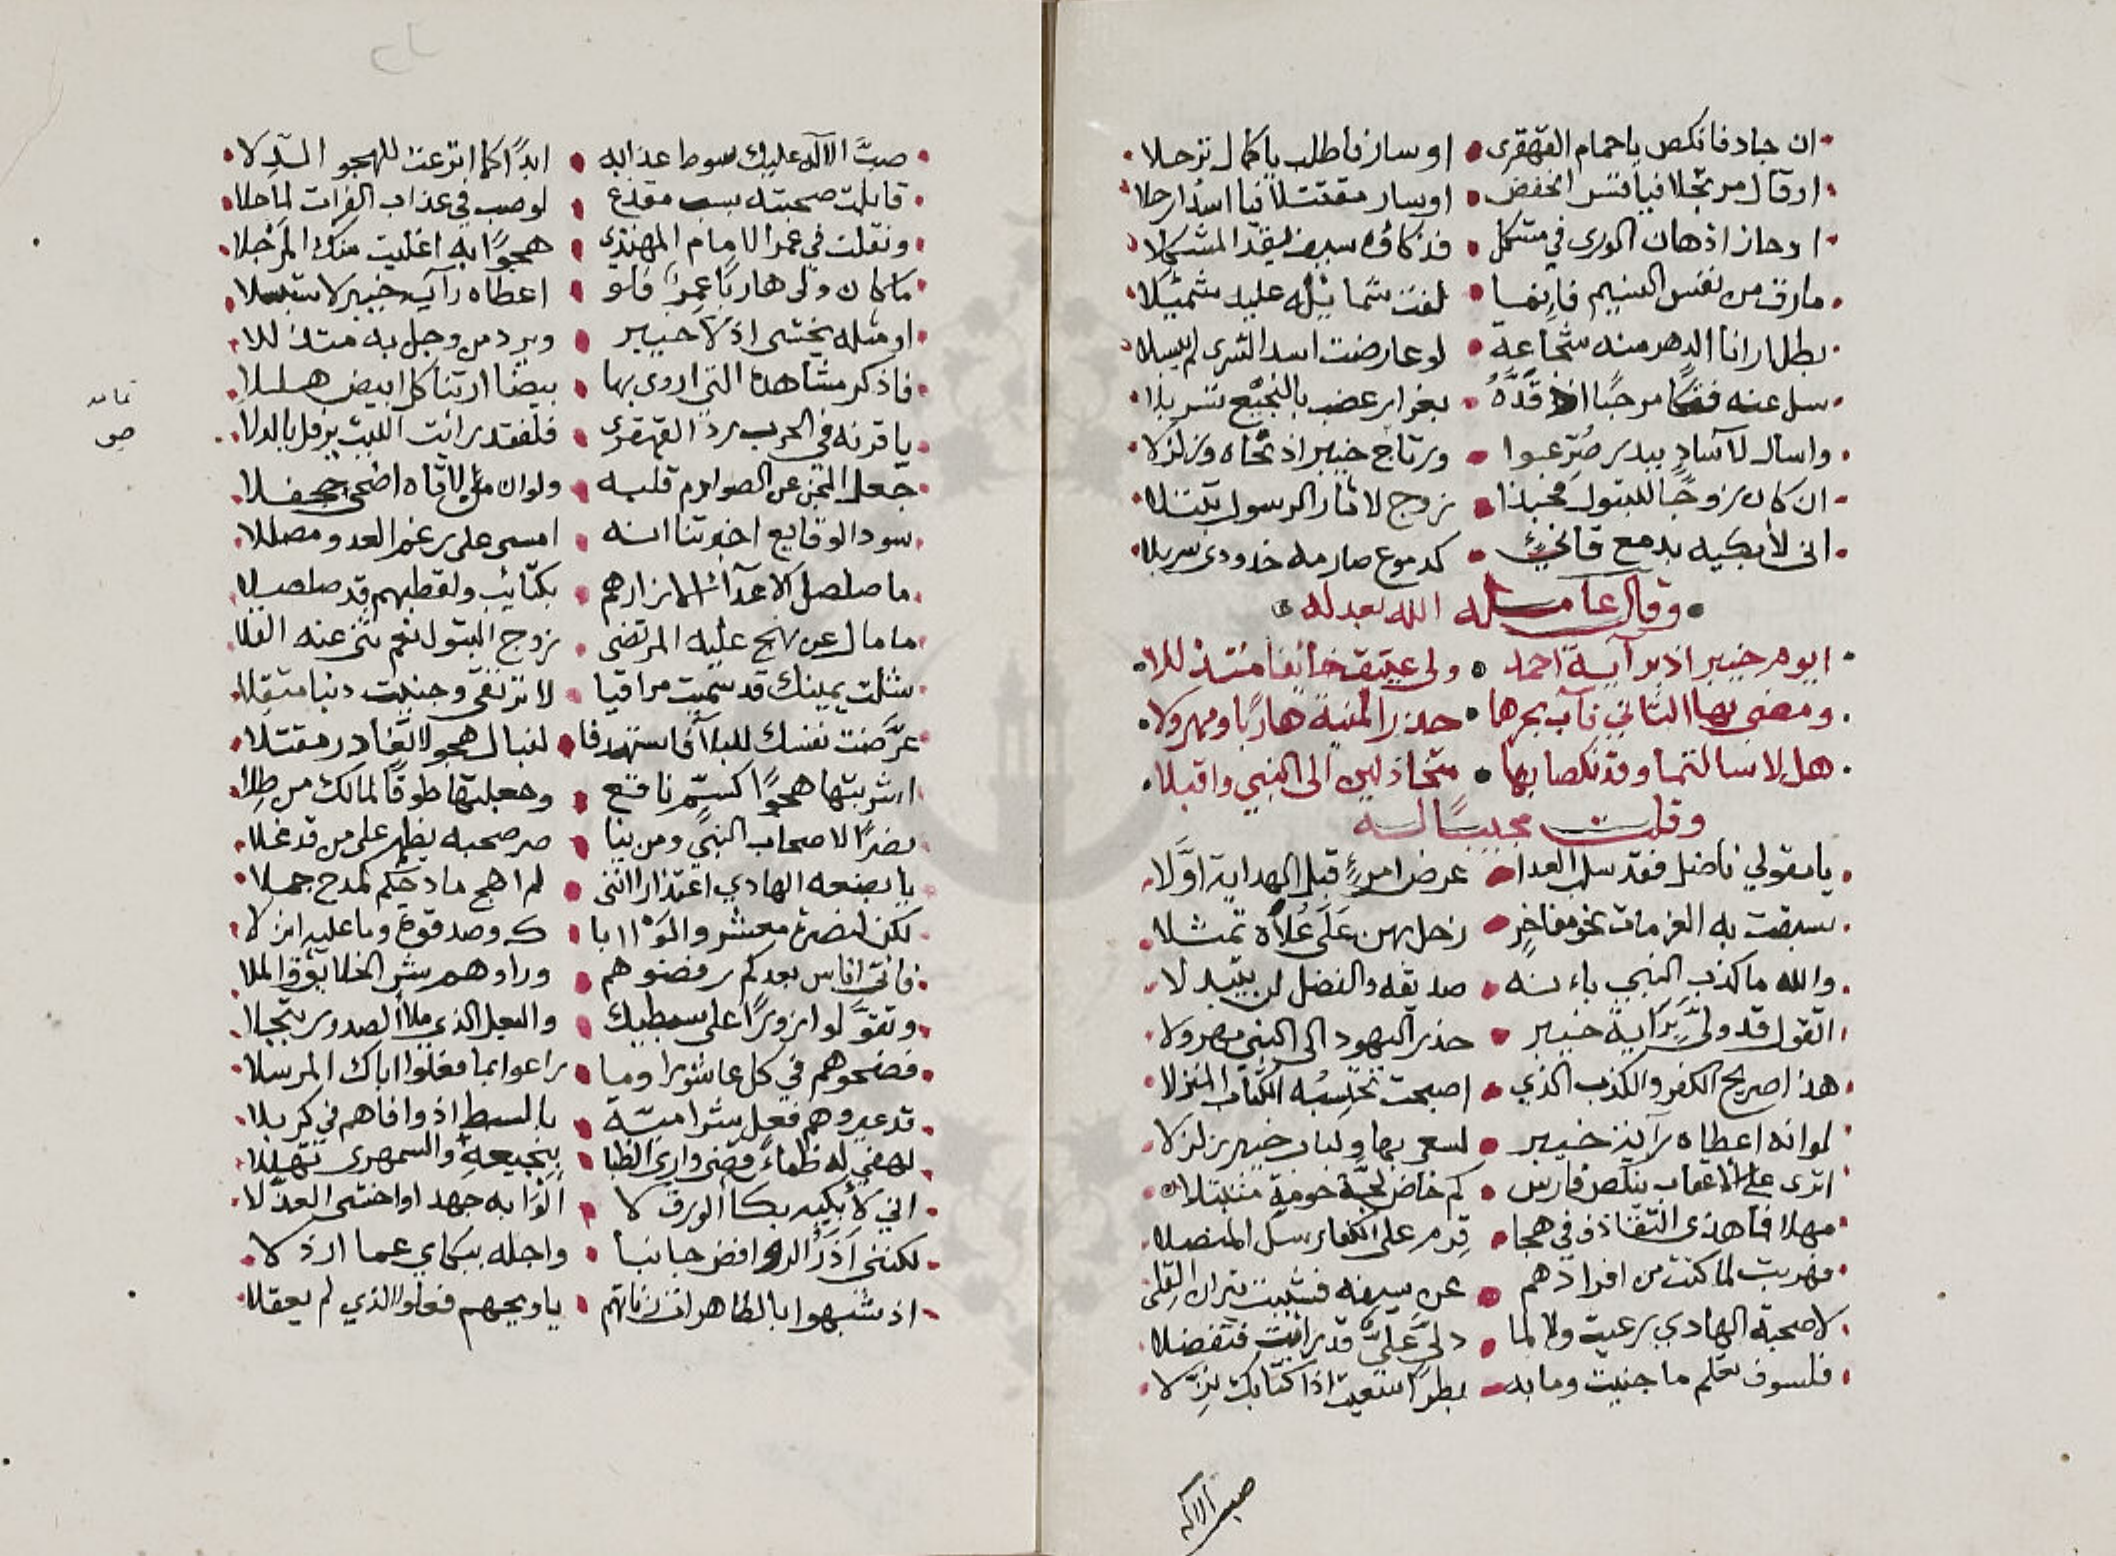 ان جاد فانكص يا حمام القهقرى او سار فاطلب يا كمال ترحلا
او قال مرتجلا فيا قس انخفض او سار مقتتلا فيا اسد ارحلا
او حار اذهان الورى في مشكل فذكاؤه سيف يقد المشكلا
مارق من نفس النسيم فانما لفت شمائله عليه شمئلا
بطل ارانا الدهر منه شجاعة لو عارضت اسد الشرى لم يبسلا
سل عنه فتكا مرحبا اذ قده بغرار عضب بالنجيع تسربلا
واسال لآساد ببدر صرعوا ورتاج خيبر اذ نحاه وزلزلا
ان كان زوجا للبتول فحبذا زوج لاثار الرسول تبتلا
اني لأبكيه بدمع قانئ كدموع صارمه خدودي سربلا
وقال عامله الله بعدله
ابو مر خيبر اذ براية احمد ولى عتيق خائفا متذللا
ومضى بها الثاني فآب يجرها حذر المنية هاربا ومهرولا
هلا سالتهما وقد نكصا بها متخاذلين الى النبي واقبلا
وقلت مجيبا له
يا مقولي ناضل فقد سل العدا عرض امرئ قبل الهداية اولا
سبقت به العزمات نحو مفاخر زحل بهن على علاه تمثلا
والله ما كذب النبي بانه صديقه والفضل لن يتبدلا
اتقول قد ولى براية خيبر حذر اليهود الى النبي مهرولا
هذا صريح الكفر والكذب الذي اصبحت تحسبه الكتاب المنزلا
لو انه اعطاه راية خيبر لسعى بها ولباب خيبر زلزلا
اترى على الاعقاب ينكص فارس كم خاض لجة حومة متبتلا
مهلا فما هذي التقاذف في هجا قرم على الكفار سل المنصلا
فهربت لما كنت من افرادهم عن سيفه فشببت نيران القلى
لا صحبة الهادي رعيت ولا لما دلى علي قد رايت فتفضلا
فلسوف تعلم ما جنيت وما به بطرا شقيت اذا كتابك نزلا
صب الاله
صب الاله عليك سوط عذابه ابدا كما اترعت للهجو الدلا
قابلت صحبته بسب مقذع لو صب في عذب الفرات لما حلا
ونقلت في عمر الامام المهتدي هجوا به اغليت منك المرجلا
ما كان ولى هاربا عمر فلو اعطاه راية خيبر لاستبسلا
او مثله يخشى اذلا خيبر ويرد من وجل به متذللا
فاذكر مشاهده التي اروى بها بيضا ارتنا كل ابيض هلهلا
يا قرنه في الحرب رد القهقرى فلقد رايت الليث يرفل بالدلا
جعل المجن عن الصوارم قلبه ولوان من لاقاه اضحى جحفلا
سود الوقايع اخبرتنا انه امسى على رغم العدو مصللا
ما صلصل الاعداء الا زارهم بكتائب ولقطبهم قد صلصلا
ما مال عن نهج عليه المرتضى زوج البتول نعم نحى عنه القلا
شلت يمينك قد سميت مراقيا لا ترتقى وجنيت دنيا مثقلا
عرضت نفسك للبلا فاستهدفا لنبال هجو لا تغادر مقتلا
اشربتها هجوا كسم ناقع وجعلتها طوقا لما لك من طلا
نضرا لاصحاب النبي ومن بنا صر صحبه يظهر على من قد غلا
يا بضعه الهادي اعتذارا انني لم اهج مادحكم لمدح جملا
لكن لنصرة معشر والوا ابا ك وصدقوه وما عليه انزلا
فاتى اناس بعدكم رفضوهم وراوهم شر الخلايق والملا
وتقولوا زورا على سبطيك والبعل الذي ملأ الصدور تبجلا
فضحوهم في كل عاشورا وما راعوا بما فعلوا اباك المرسلا
قد عيروهم فعل شر امة بالسبط اذ وافاهم في كربلا
لهفي له ظماء قضى واري الظبا بنجيعه والسمهرى تهللا
اني لأبكيه بكا الورق لا الوا به جهدا او اخشى العذلا
لكنني اذر الروافض جانبا واجله ببكاي عما ارذلا
اذ شبهوا بالطاهرات زناتهم يا ويحهم فعلوا الذي لم يعقلا